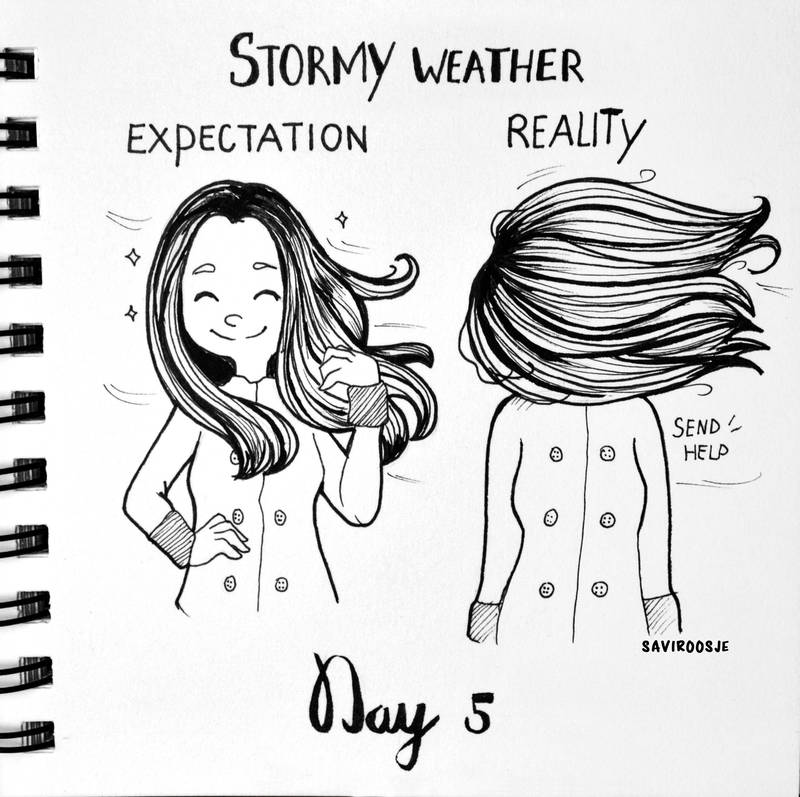 STORMY WEATHER
EXPECTATION
REALITY
SEND
HELP
SAVIROOSJE
Day 5